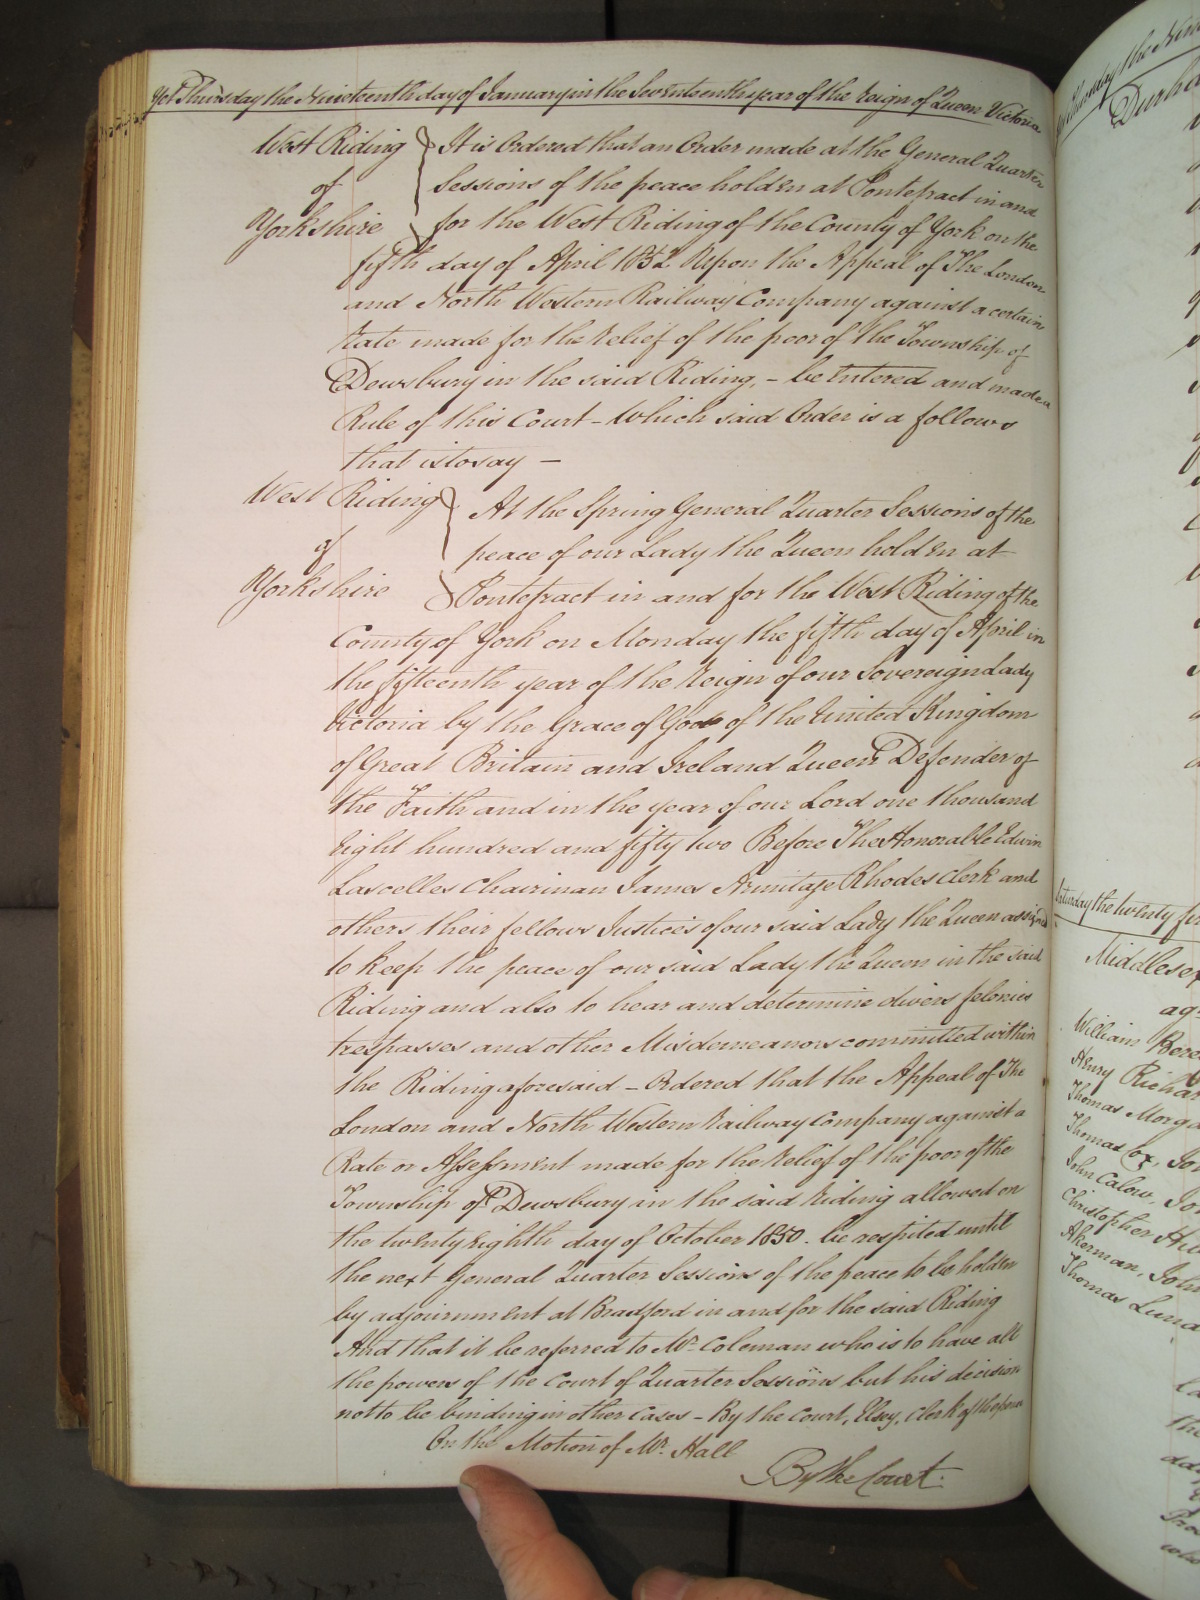 Yet Thursday the Nineteenth day of January in the Seventeenth year of the Reign of Queen Victoria
West Riding
of
Yorkshire
It is Ordered that an Order made at the General Quarter
Sessions of the peace holden at Pontefract in and
for the West Riding of the County of York on the
fifth day of April 1852 Upon the Appeal of The London
and North Western Railway Company against a certain
Rate made for the Relief of the poor of the Township of
Dewsbury in the said Riding, - be Entered and made a
Rule of this Court - Which said Order is a follows
that is to say -
West Riding
of
Yorkshire
At the Spring General Quarter Sessions of the
peace of our Lady the Queen holden at
Pontefract in and for the West Riding of the
County of York on Monday the fifth day of April in
the fifteenth year of the Reign of our Sovereign Lady
Victoria by the Grace of God of the United Kingdom
of Great Britain and Ireland Queen Defender of
the Faith and in the year of our Lord one thousand
Eight hundred and fifty two Before The Honorable Edwin
Lascelles Chairman James Armitage Rhodes Clerk and
others their fellows Justices of our said Lady the Queen assigned
to keep the peace of our said Lady the Queen in the said
Riding and also to hear and determine divers felonies
trespasses and other Misdemeanors committed within
the Riding aforesaid - Ordered that the Appeal of The
London and North Western Railway Company against a
Rate or Assessment made for the Relief of the poor of the
Township of Dewsbury in the said Riding allowed on
the twenty Eighth day of October 1850. be respited until
the next General Quarter Sessions of the peace to be holden
by adjournment at Bradford in and for the said Riding
And that it be referred to Mr. Coleman who is to have all
the powers of the Court of Quarter Sessions but his decision
not to be binding in other Cases - By the Court, Elsey, Clerk of the peace
On the Motion of Mr. Hall
By the Court.
Saturday the twenty
Middlesex
William
Henry
Thomas
Thomas Cox,
John Calow,
Christopher
Akerman, John
Thomas